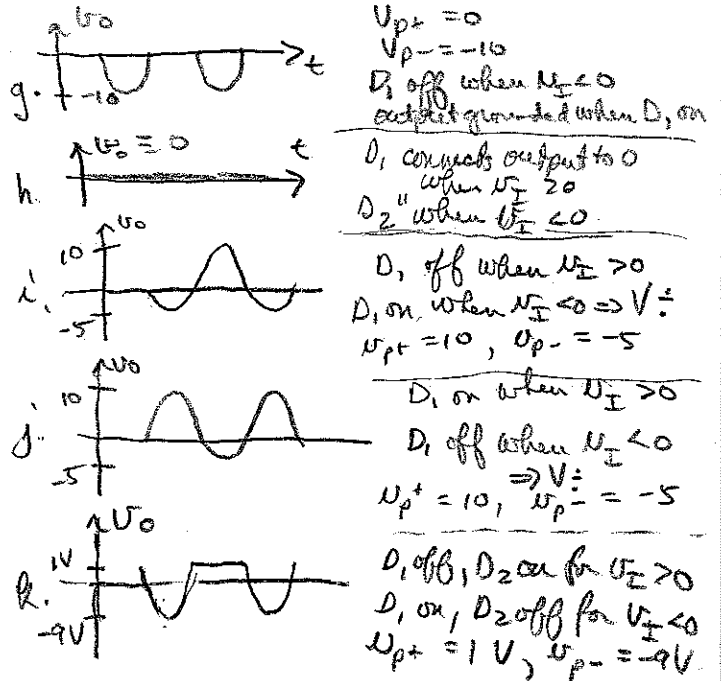 g.
υo
-10
t
Vp+ = 0
Vp- = -10
D₁ off when υI < 0
output grounded when D₁ on
h.
υo ≡ 0
t
D₁ connects output to 0
when υI ≥ 0
D₂ " when υI < 0
i.
υo
10
-5
D₁ off when υI > 0
D₁ on when υI < 0 ⇒ V÷
υp+ = 10, υp- = -5
j.
υo
10
-5
D₁ on when υI > 0
D₁ off when υI < 0
⇒ V÷
υp+ = 10, υp- = -5
k.
υo
1V
-9V
D₁ off, D₂ on for υI > 0
D₁ on, D₂ off for υI < 0
υp+ = 1 V, υp- = -9V